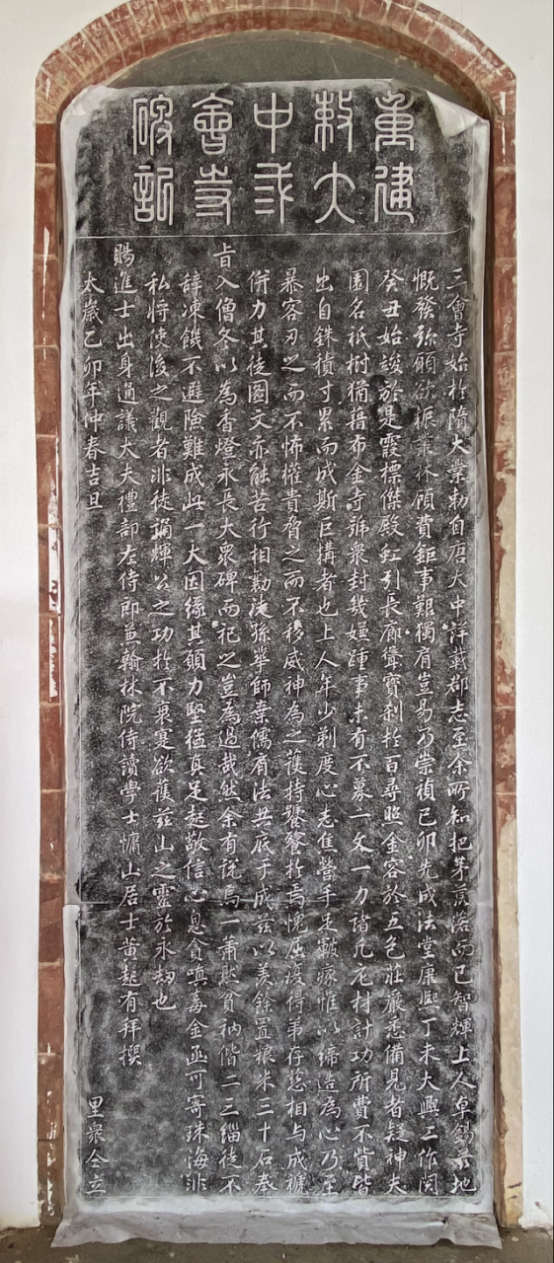 重建
敕大
中三
會寺
碑記
三會寺始於隋大業勅自唐大中詳載郡志至余所知把茅蕭落而已智輝上人卓錫茲地
慨發弥願欲振叢林顧費鉅事艱獨肩豈易乃崇禎己卯先成法堂康熙丁未大興工作閱
癸丑始竣於是霞標傑殿虹引長廊聳寶剎於百尋照金容於五色莊嚴悉備見者疑神夫
園名祇樹猶藉布金寺號眾封幾嫗踵事未有不募一文一力諸凡庀材計功所費不貲皆
出自銖積寸累而成斯巨搆者也上人年少剃度心志焦營手足皸瘃惟以締造為心乃至
暴客刃之而不怖權貴脅之而不移威神為之護持饕餮於焉愧屈疑得事存慈相与成褫
併力其徒圓文亦能苦行相勷徒孫華師業儒有法共底于成茲以羨餘置粮米三十石奉
旨入僧冬以為香燈永長大眾碑而祀之豈為過哉然余有說焉一蕭然貧衲偕二三緇徒不
辭凍餓不避險難成此一大因緣其願力堅猛真足起敬信心息貪嗔毒金函可寄珠海非
私將使後之觀者非徒謟輝公之功於不衰寔欲護茲山之靈於永劫也
賜進士出身通議大夫禮部左侍郎兼翰林院侍讀學士慵山居士黃起有拜撰
太歲乙卯年仲春吉旦 里眾仝立